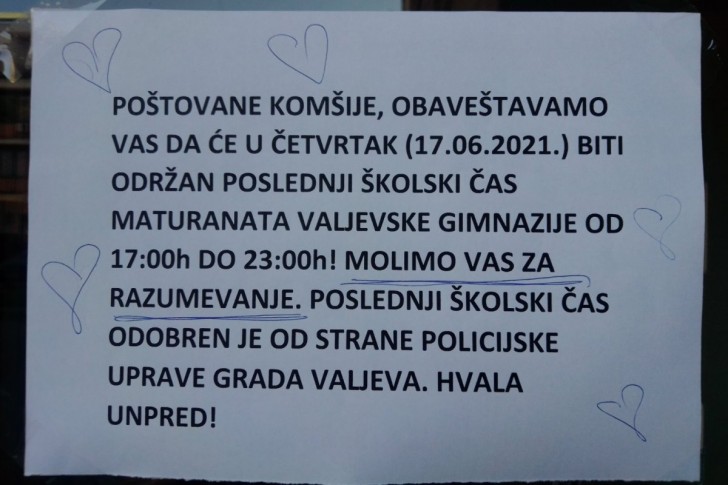 POŠTOVANE KOMŠIJE, OBAVEŠTAVAMO
VAS DA ĆE U ČETVRTAK (17.06.2021.) BITI
ODRŽAN POSLEDNJI ŠKOLSKI ČAS
MATURANATA VALJEVSKE GIMNAZIJE OD
17:00h DO 23:00h! MOLIMO VAS ZA
RAZUMEVANJE. POSLEDNJI ŠKOLSKI ČAS
ODOBREN JE OD STRANE POLICIJSKE
UPRAVE GRADA VALJEVA. HVALA
UNPRED!